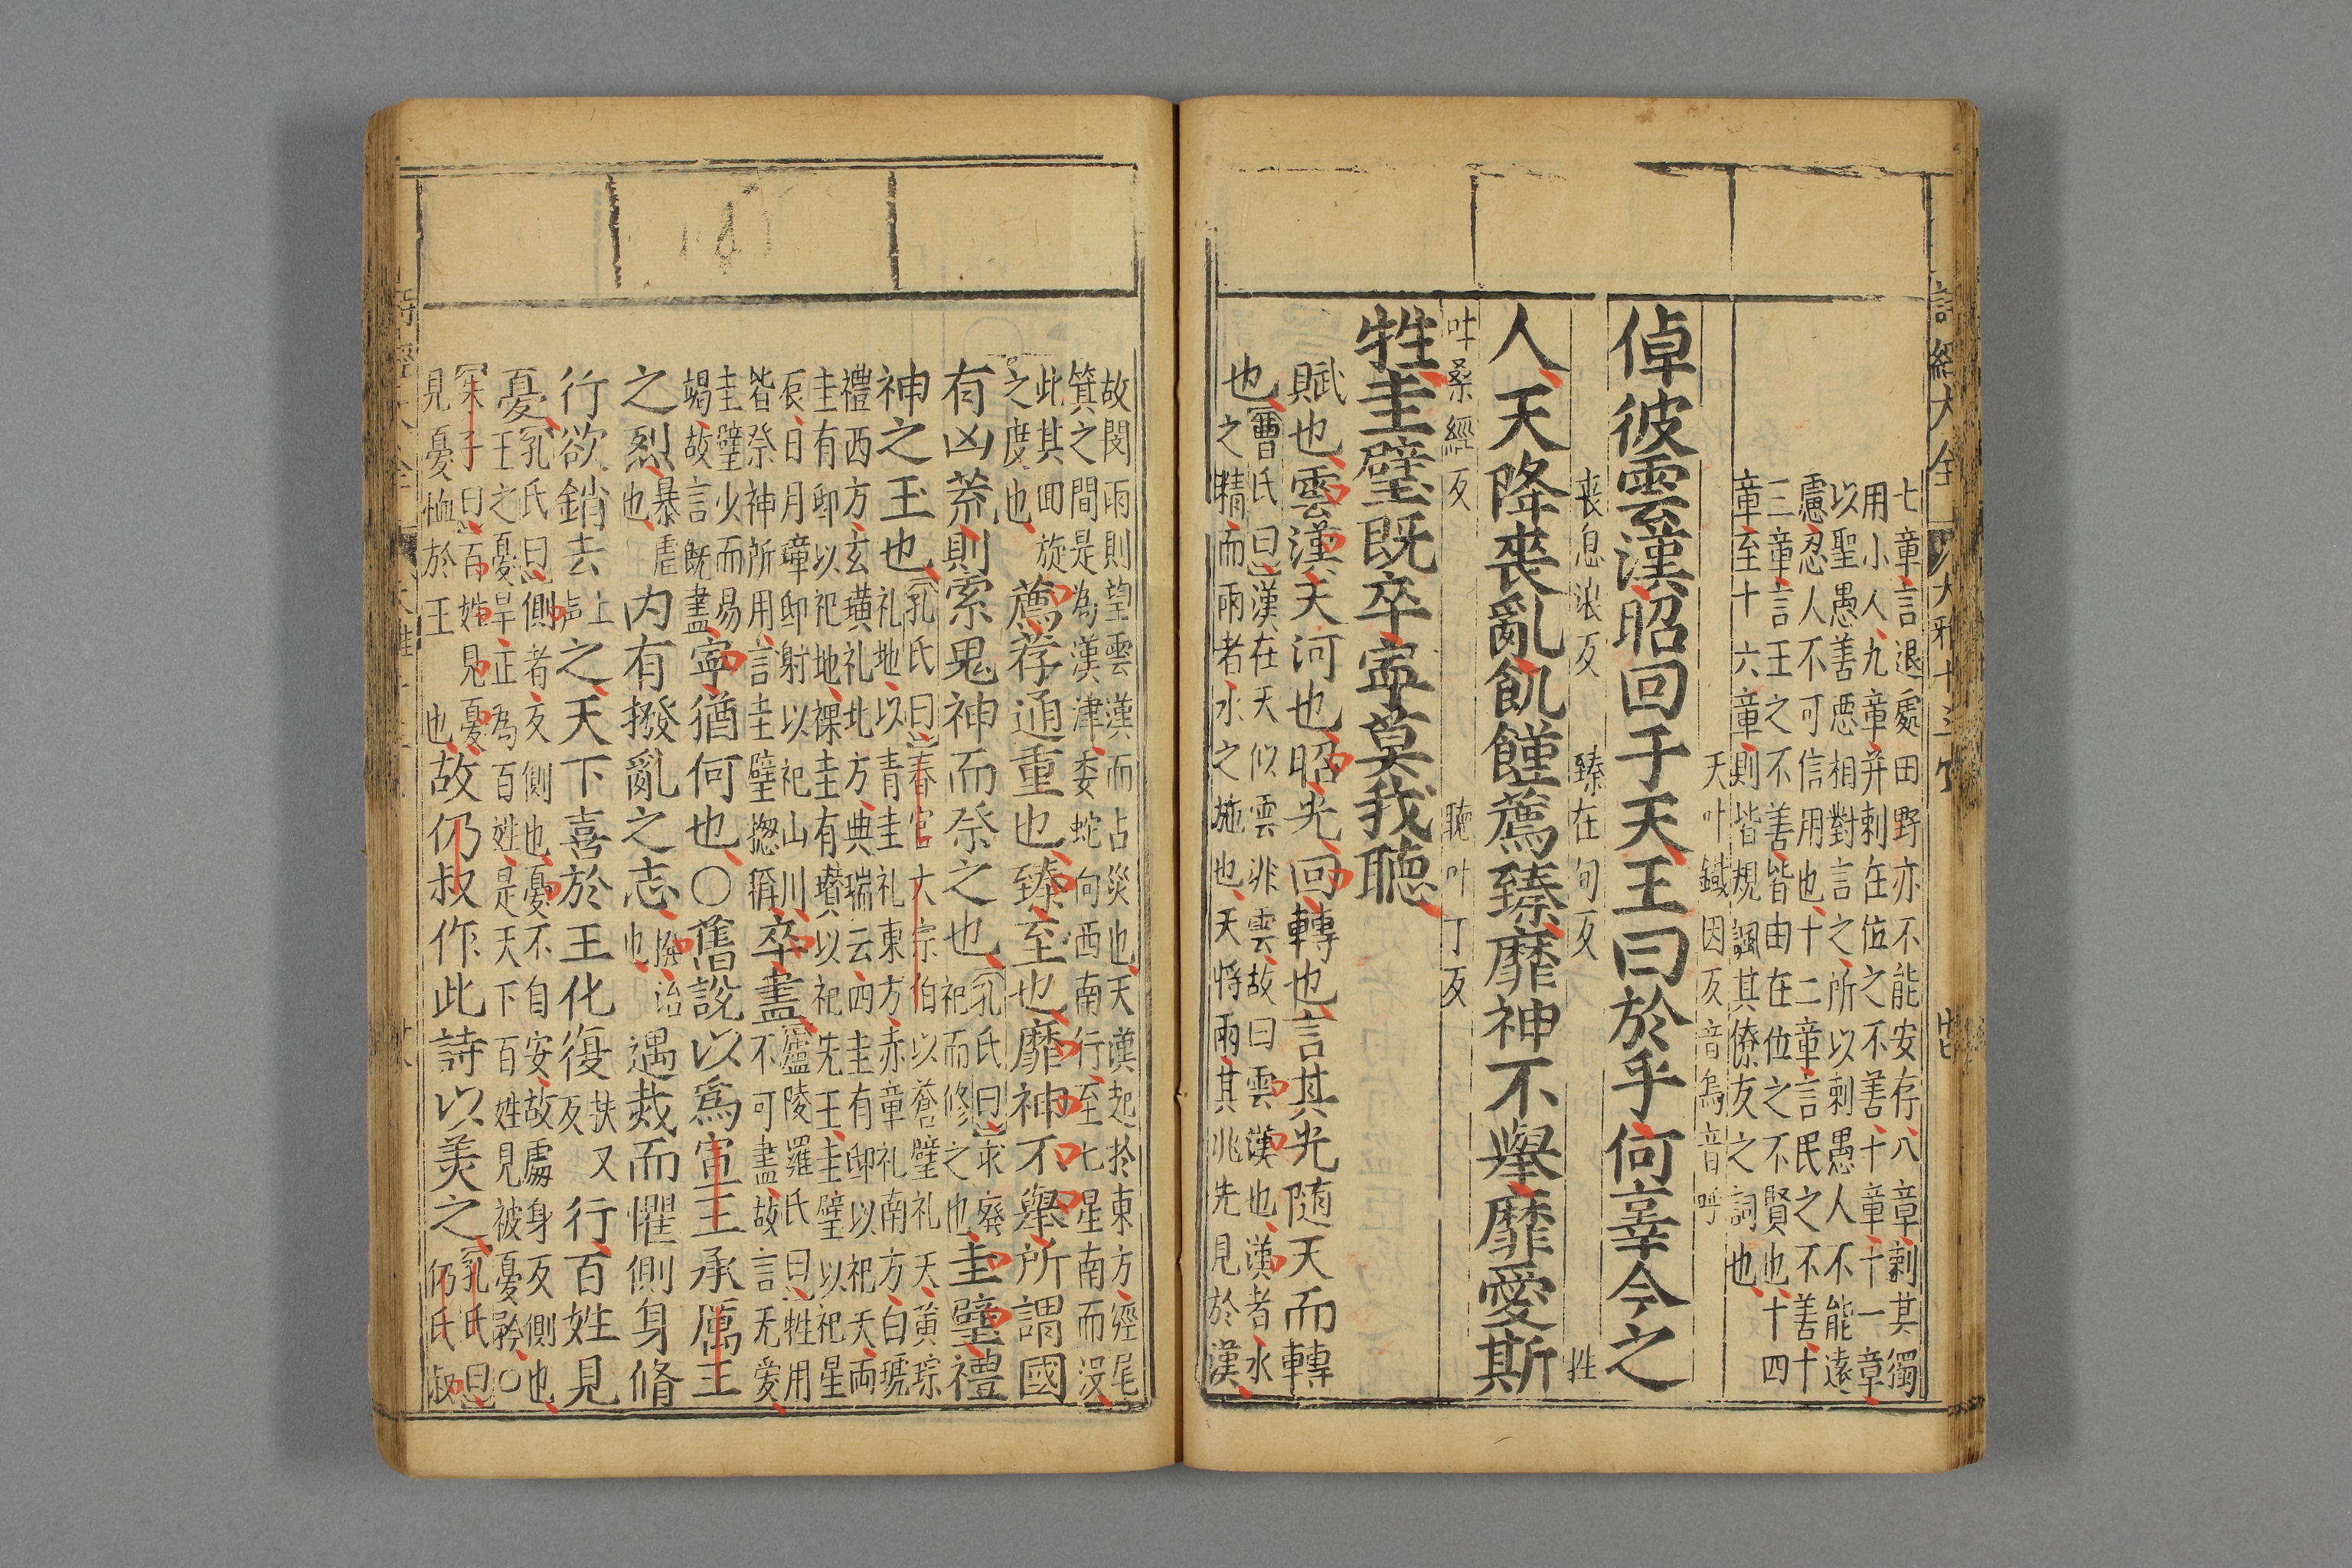 詩經大全
大雅十三
七章言退處田野亦不能安存八章剌其獨
用小人九章并剌在位之不善十章十一章
以聖愚善惡相對言之所以剌愚人不能遠
慮忍人不可信用也十二章言民之不善十
三章言王之不善皆由在位之不賢也十四
章至十六章則皆規諷其僚友之詞也
天叶鐵因反音烏音呼
倬彼雲漢昭回于天王曰於乎何辜今之
喪息浪反 臻在句反 牲
人天降喪亂飢饉薦臻靡神不舉靡愛斯
叶桑經反 聽叶丁反
牲圭璧既卒寧莫我聽
賦也雲漢天河也昭光回轉也言其光隨天而轉
也
曹氏曰漢在天似雲非雲故曰雲漢也漢者水
之精而雨者水之施也天將雨其兆先見於漢
故閔雨則望雲漢而占災也天漢起於東方經尾
箕之間是為漢津委蛇向西南行至七星南而没
此其回旋
之度也
薦荐通重也臻至也靡神不舉所謂國
有凶荒則索鬼神而祭之也
孔氏曰求廢
祀而修之也
圭璧禮
神之玉也
孔氏曰春官大宗伯以蒼璧礼天黄琮
礼地以青圭礼東方赤章礼南方白琥
禮西方玄璜礼北方典瑞云四圭有邸以祀天兩
圭有邸以祀地祼圭有瓚以祀先王圭璧以祀星
辰日月璋邸射以祀山川
卒盡
廬陵羅氏曰牲用
不可盡故言无爱
皆祭神所用言圭璧揔稱
圭璧少而易
竭故言既盡
寧猶何也○舊說以爲宣王承厲王
之烈
暴虐
也
内有撥亂之志
治
也
遇烖而懼側身脩
行欲銷去
上
声
之天下喜於王化復
扶又
反
行百姓見
憂
孔氏曰側者反側也憂不自安故處身反側也
王之憂旱正為百姓是天下百姓見被憂矜○
朱子曰百姓見憂
見憂恤於王也
故仍叔作此詩以美之
孔氏曰
仍氏叔